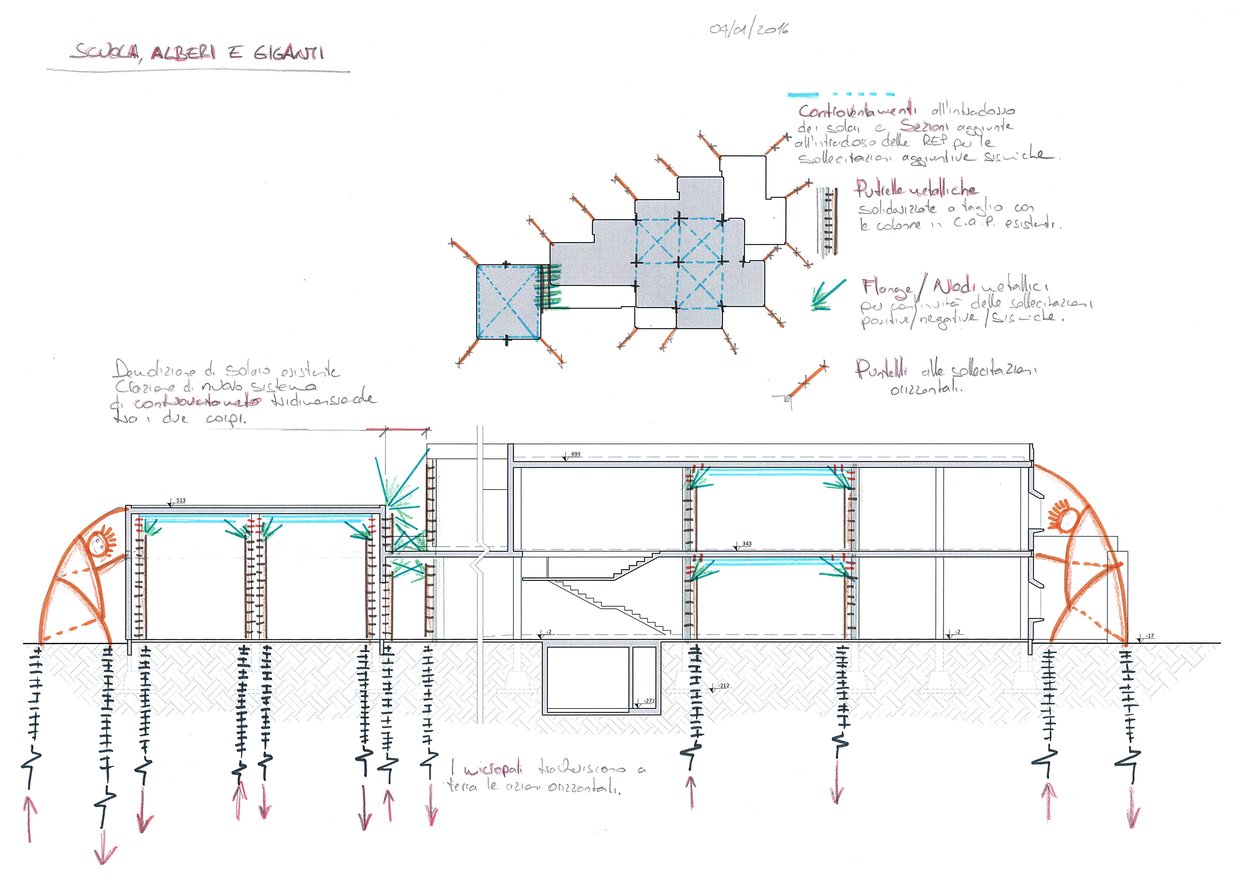 04/01/2016
SCUOLA, ALBERI E GIGANTI
Controventamenti all'intradosso
dei solai e Sezioni aggiunte
all'intradosso delle REP per le
sollecitazioni aggiuntive sismiche.
Putrelle metalliche
solidarizzate a taglio con
le colonne in C.A.P. esistenti.
Flange/Nodi metallici
per continuità delle sollecitazioni
positive/negative/sismiche.
Puntelli alle sollecitazioni
orizzontali.
Demolizione di solaio esistente
Creazione di nuovo sistema
di controventamento tridimensionale
tra i due corpi.
693
513
343
-2
-2
-17
-212
-272
I micropali trasferiscono a
terra le azioni orizzontali.